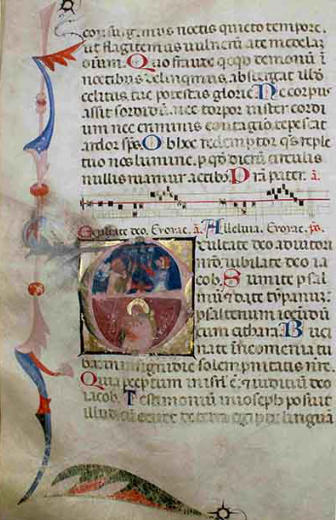 consurgimus noctis quieto tempore,
ut flagitemus vulnerū a te medelaʒ
omīum. Quo fraude qcqd demonū ī
noctibus delinquimus, abstergat illō
celitus tue potestas glorie. Ne corpus
assit sordidū, nec torpor instet cordi
um nec criminis contagio tepescat
ardor sp̄s. Ob hoc redemptor q̄s reple
tuo nos lumine, p qd dierū circulis
nullis ruamus actibus. Pr̄a pater. a.
Exultate deo, Evovae. a. Alleluia, Evovae. ps.
Exultate deo adiutori
nr̄o, iubilate deo ia
cob. Sumite psal
mū & date tympanū:
psalterium iocūdū
cum cithara. Buci
nate ī neomenia tu
ba: in insigni die solempnitatis nr̄e.
Quia preceptum in isrl̄ ē: & iudiciū deo
iacob. Testimoniū in ioseph posuit
illud cū exiret de terra egipti: lingua